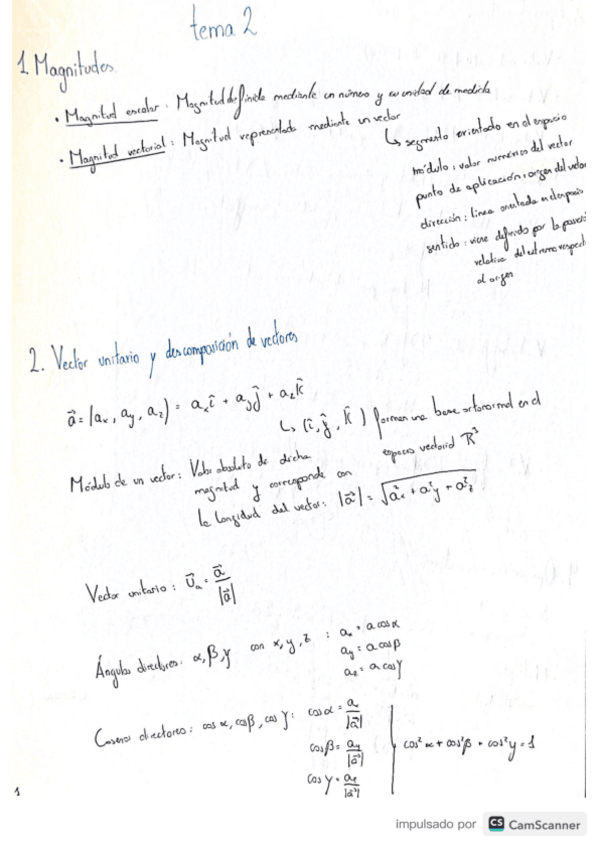 tema 2
1. Magnitudes
• Magnitud escalar: Magnitud definida mediante un número y su unidad de medida
• Magnitud vectorial: Magnitud representada mediante un vector
↳ segmento orientado en el espacio
módulo: valor numérico del vector
punto de aplicación: origen del vector
dirección: línea
sentido: viene definido por la posici
relativa del extremo respect
al origen
2. Vector unitario y descomposición de vectores
a⃗ = (aₓ, a_y, a_z) = aₓ î + a_y ĵ + a_z k̂
↳ (î, ĵ, k̂) forman una base ortonormal en el
espacio vectorial R³
Módulo de un vector: Valor absoluto de dicha
magnitud y corresponde con
la longitud del vector: |a⃗| = √(a²ₓ + a²_y + a²_z)
Vector unitario: U⃗ₐ = a⃗ / |a⃗|
Ángulos directores: α, β, γ con x, y, z : aₓ = a cos α
a_y = a cos β
a_z = a cos γ
Cosenos directores: cos α, cos β, cos γ: cos α = aₓ / |a⃗|
cos β = a_y / |a⃗|
cos² α + cos² β + cos² γ = 1
cos γ = a_z / |a⃗|
1
impulsado por CS CamScanner